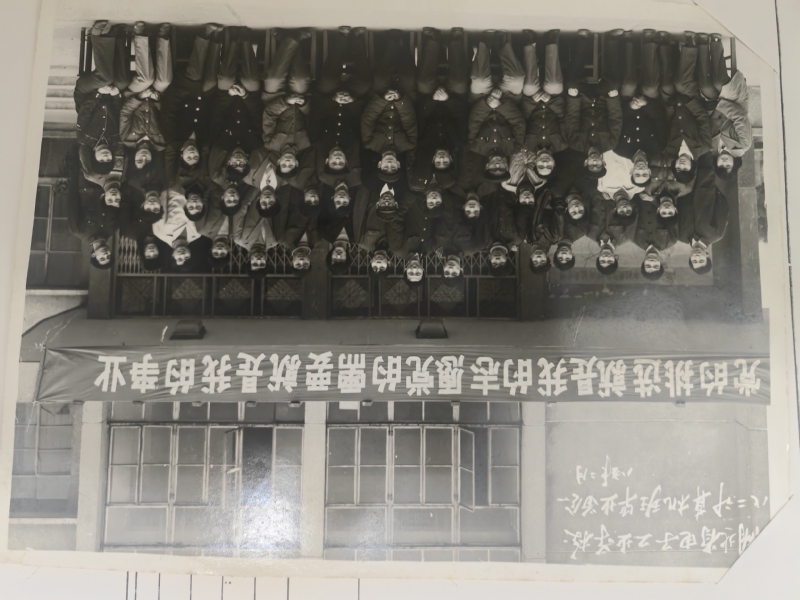 湖北省电子工业学校
八二计算机班毕业留念
党的挑选就是我的志愿党的需要就是我的事业